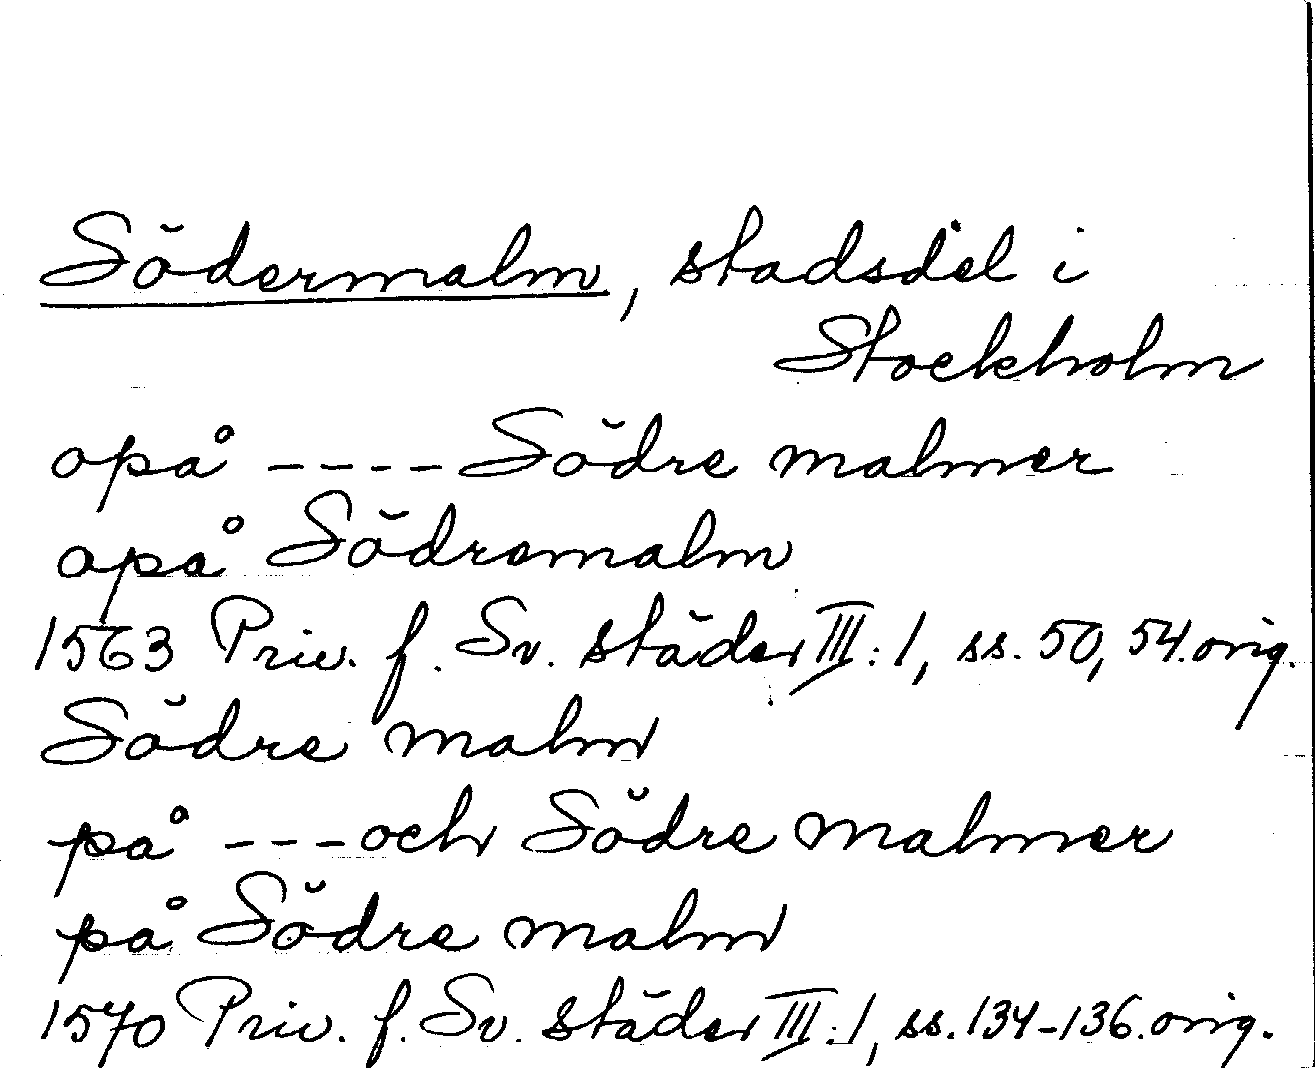 Södermalm, stadsdel i
Stockholm
opå ---- Södre malmer
opå Södremalm
1563 Priv. f. Sv. städer III:1, ss. 50, 54. orig.
Södre malm
på --- och Södre malmer
på Södre malm
1570 Priv. f. Sv. städer III:1, ss. 134-136. orig.